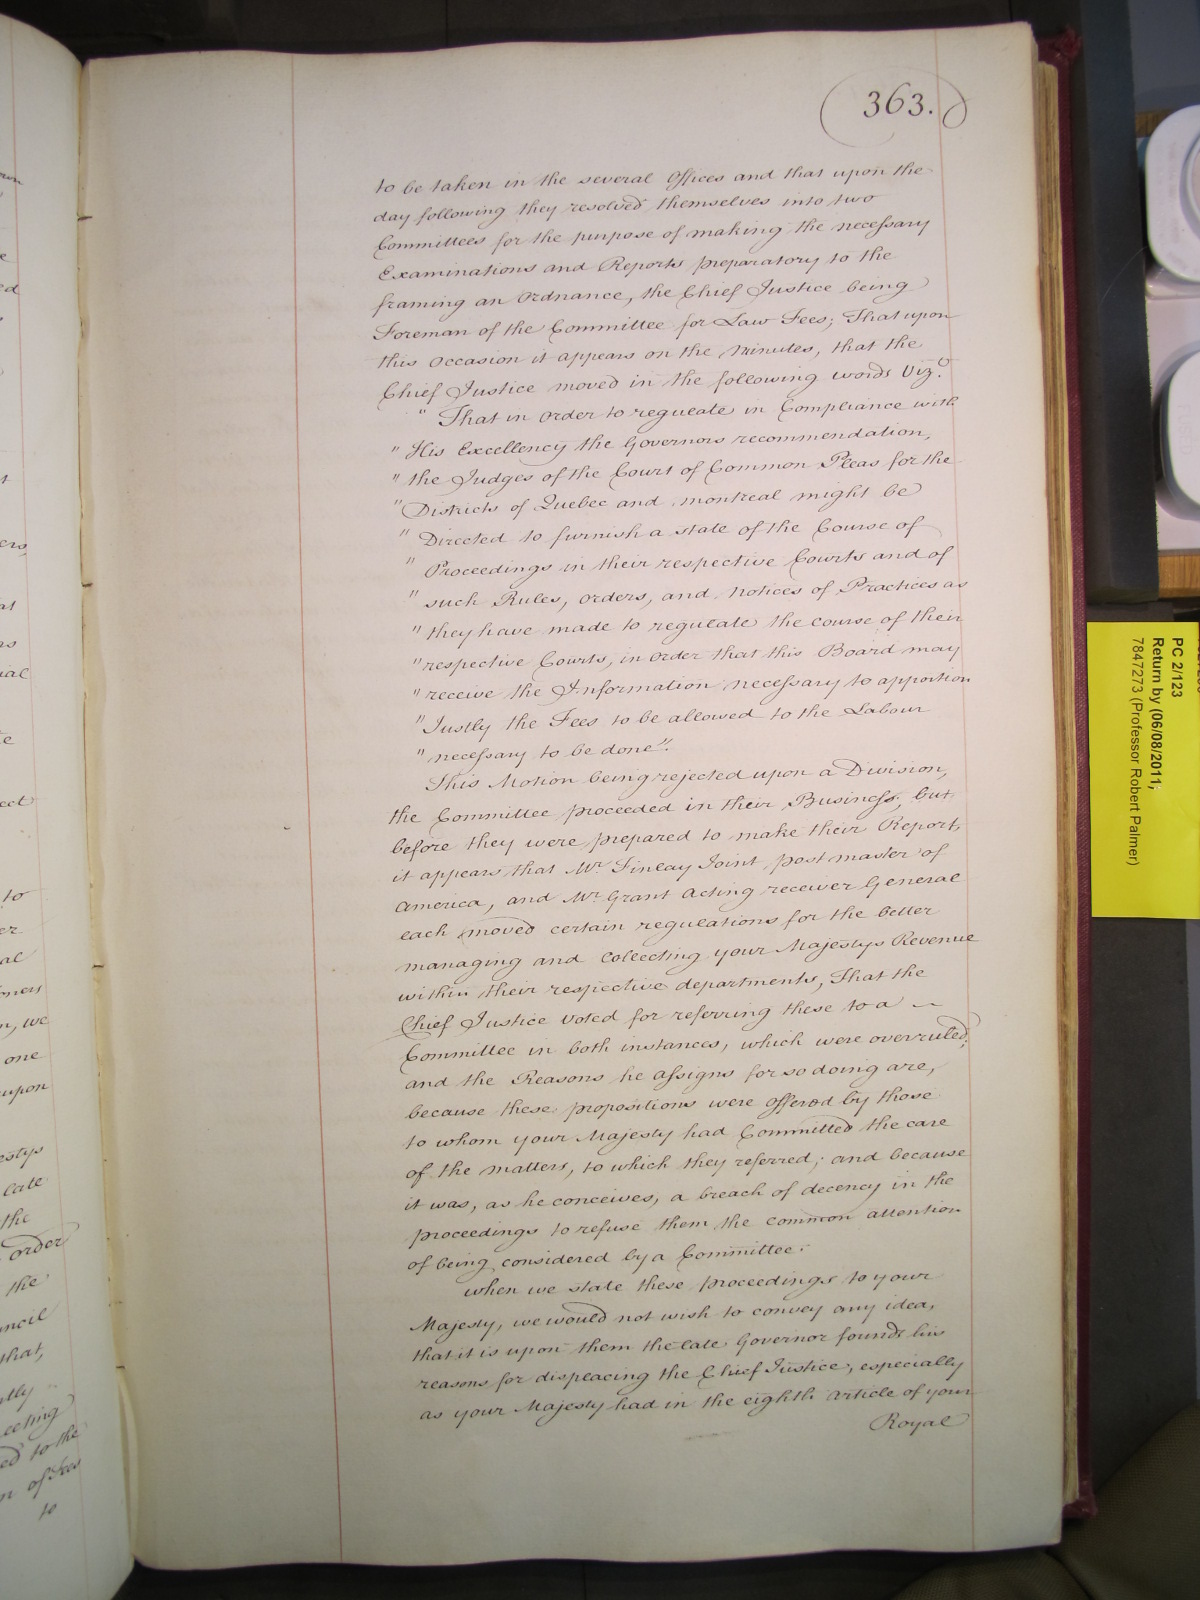 363.
to be taken in the several Offices and that upon the
day following they resolved themselves into two
Committees for the purpose of making the necessary
Examinations and Reports preparatory to the
framing an Ordnance, the Chief Justice being
Foreman of the Committee for Law Fees; That upon
this occasion it appears on the Minutes, that the
Chief Justice moved in the following words Viz.t
" That in order to regulate in Compliance with
" His Excellency the Governors recommendation,
" the Judges of the Court of Common Pleas for the
" Districts of Quebec and Montreal might be
" Directed to furnish a state of the Course of
" Proceedings in their respective Courts and of
" such Rules, Orders, and Notices of Practices as
" they have made to regulate the course of their
" respective Courts, in order that this Board may
" receive the Information necessary to apportion
" Justly the Fees to be allowed to the Labour
" necessary to be done".
This Motion being rejected upon a Division,
the Committee proceeded in their Business, but
before they were prepared to make their Report,
it appears that Mr. Finlay Joint post master of
America, and Mr. Grant Acting receiver General
each moved certain regulations for the better
managing and Collecting your Majestys Revenue
within their respective departments, That the
Chief Justice Voted for referring these to a
Committee in both instances, which were overruled;
and the Reasons he assigns for so doing are,
because these propositions were offered by those
to whom your Majesty had Committed the care
of the matters, to which they referred; and because
it was, as he conceives, a breach of decency in the
proceedings to refuse them the common attention
of being considered by a Committee.
When we state these proceedings to your
Majesty, we would not wish to convey any idea,
that it is upon them the late Governor founds his
reasons for displacing the Chief Justice, especially
as your Majesty had in the eighth Article of your
Royal
PC 2/123
Return by (06/08/2011;
7847273 (Professor Robert Palmer)